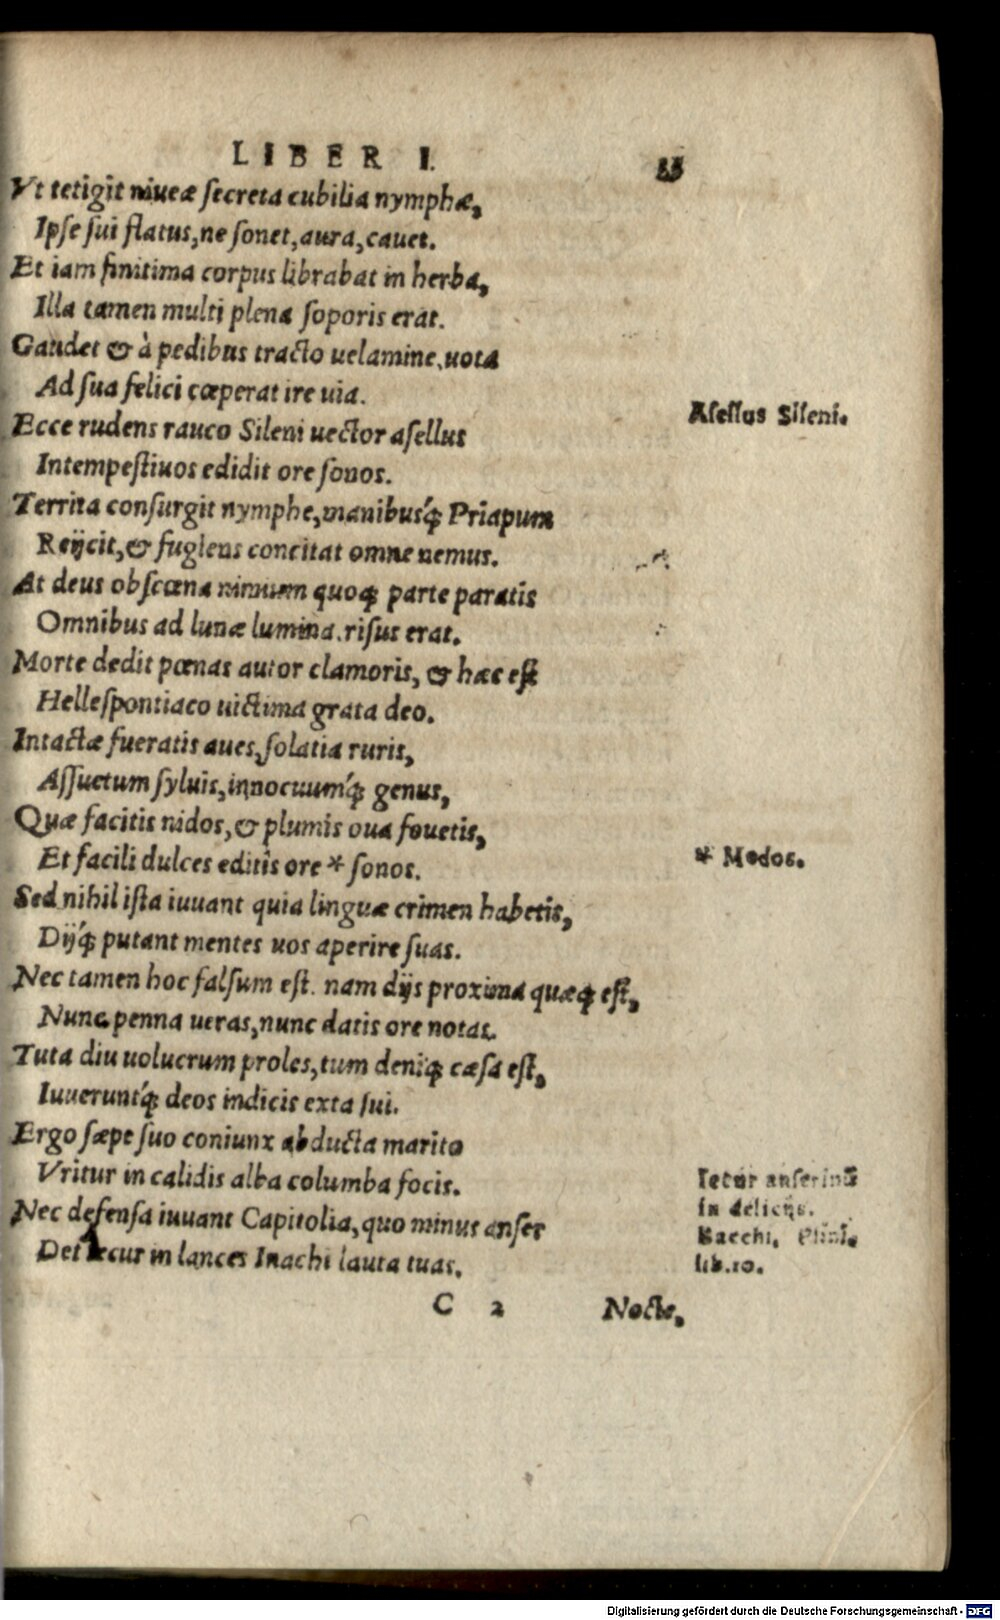 LIBER I.
Vt tetigit niueæ ſecreta cubilia nymphæ,
Ipſe ſui flatus, ne ſonet, aura, cauet.
Et iam finitima corpus librabat in herba,
Illa tamen multi plena ſoporis erat.
Gaudet & à pedibus tracto uelamine, uota
Ad ſua felici cœperat ire uia.
Ecce rudens rauco Sileni uector aſellus
Aſellus Sileni.
Intempeſtiuos edidit ore ſonos.
Territa conſurgit nymphe, manibusq́ꝫ Priapum
Reijcit, & fugiens concitat omne nemus.
At deus obſcœna nimium quoqꝫ parte paratis
Omnibus ad lunæ lumina. riſus erat.
Morte dedit pœnas autor clamoris, & hæc eſt
Helleſpontiaco uictima grata deo.
Intactæ fueratis aues, ſolatia ruris,
Aſſuetum ſyluis, innocuumq́ꝫ genus,
Quæ facitis nidos, & plumis oua fouetis,
Et facili dulces editis ore * ſonos.
* Modos.
Sed nihil iſta iuuant quia linguæ crimen habetis,
Dijq́ꝫ putant mentes uos aperire ſuas.
Nec tamen hoc falſum eſt. nam dijs proxima quæqꝫ eſt,
Nunc penna ueras, nunc datis ore notas.
Tuta diu uolucrum proles, tum deniqꝫ cæſa eſt,
Iuueruntq́ꝫ deos indicis exta ſui.
Ergo ſæpe ſuo coniunx abducta marito
Vritur in calidis alba columba focis.
Nec defenſa iuuant Capitolia, quo minus anſer
Det iecur in lances Inachi lauta tuas.
Iecur anſerinū
in delicijs.
Bacchi. Plini.
lib.10.
C 2
Nocte,
Digitalisierung gefördert durch die Deutsche Forschungsgemeinschaft - DFG